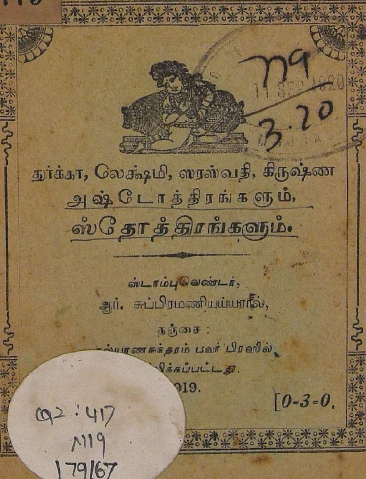 779
11 SEP 1920
3.20
துர்க்கா, லேக்ஷ்மி, ஸரஸ்வதி, கிருஷ்ண
அஷ்டோத்திரங்களும்,
ஸ்தோத்திரங்களும்.
ஸ்டாம்புவெண்டர்,
ஆர். சுப்பிரமணியய்யரால்,
தஞ்சை:
ல்யாணசுந்தரம் பவர் பிரஸில்
பிக்கப்பட்டது.
1919.
[0-3-0.
Q2 : 417
N19
179167